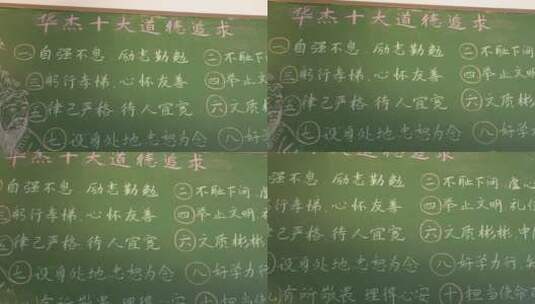 华杰十大道德追求
一自强不息 励志勤勉 二不耻下
三躬行孝悌、心怀友善 四举止文
五律己严格 待人宜宽 六文质
七设身处地 为念 八好学
华杰十大道德追求
一自强不息 励志勤勉 二不耻下
三躬行孝悌、心怀友善 四举止文
律己严格 待人宜宽 六文质
七设身处地 为念 八好学
杰十大道德追求
自强不息 励志勤勉 二不耻下问 虚
躬行孝悌、心怀友善 四举止文明 礼
律己严格 待人宜宽 六文质彬彬
七设身处地 为念 八好学力行
有所敬畏 理得心安 十担当使命
十大道德追求
强不息 励志勤勉 二不耻下问 虚心
行孝悌、心怀友善 四举止文明 礼仪
己严格 待人宜宽 六文质彬彬,
设身处地 为念 八好学力行,
有所敬畏 理得心安 十担当使命